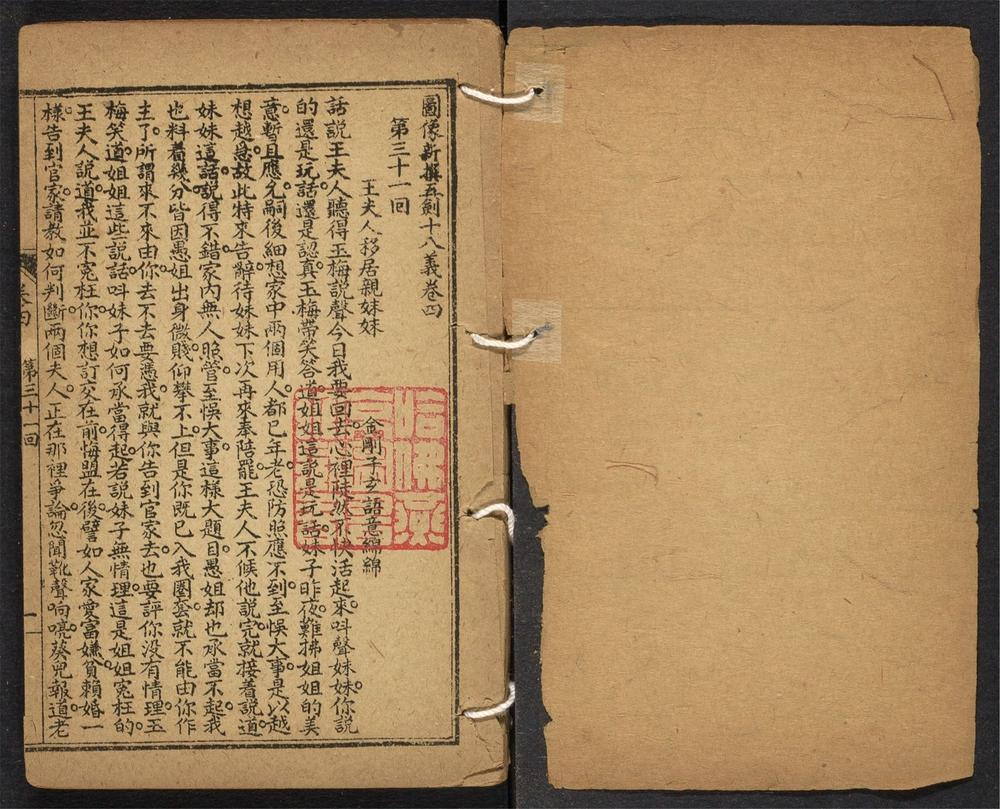 圖像新撰五劍十八義卷四
第三十一回
王夫人移居親妹妹　金剛子玄語意綿綿
話說王夫人聽得玉梅說聲今日我要回去心裡陡然不快活起來叫聲妹妹你說
的還是玩話還是認真玉梅帶笑答道姐姐這說是玩話妹子昨夜難拂姐姐的美
意暫且應允嗣後細想家中兩個用人都已年老恐防照應不到至悞大事是以越
想越急故此特來告辭待妹妹下次再來奉陪罷王夫人不候他說完就接着說道
妹妹這話說得不錯家內無人照管至悞大事這樣大題目愚姐却也承當不起我
也料着幾分皆因愚姐出身微賤仰攀不上但是你既已入我圈套就不能由你作
主了所謂來不來由你去不去要憑我就與你告到官家去也要評你没有情理玉
梅笑道姐姐這些說話叫妹子如何承當得起若說妹子無情理這是姐姐寃枉的
王夫人說道我並不寃枉你你想訂交在前悔盟在後譬如人家愛富嫌貧賴婚一
樣告到官家請教如何判斷兩個夫人正在那裡爭論忽聞靴聲响喨葵兒報道老
卷四
第三十一回
一